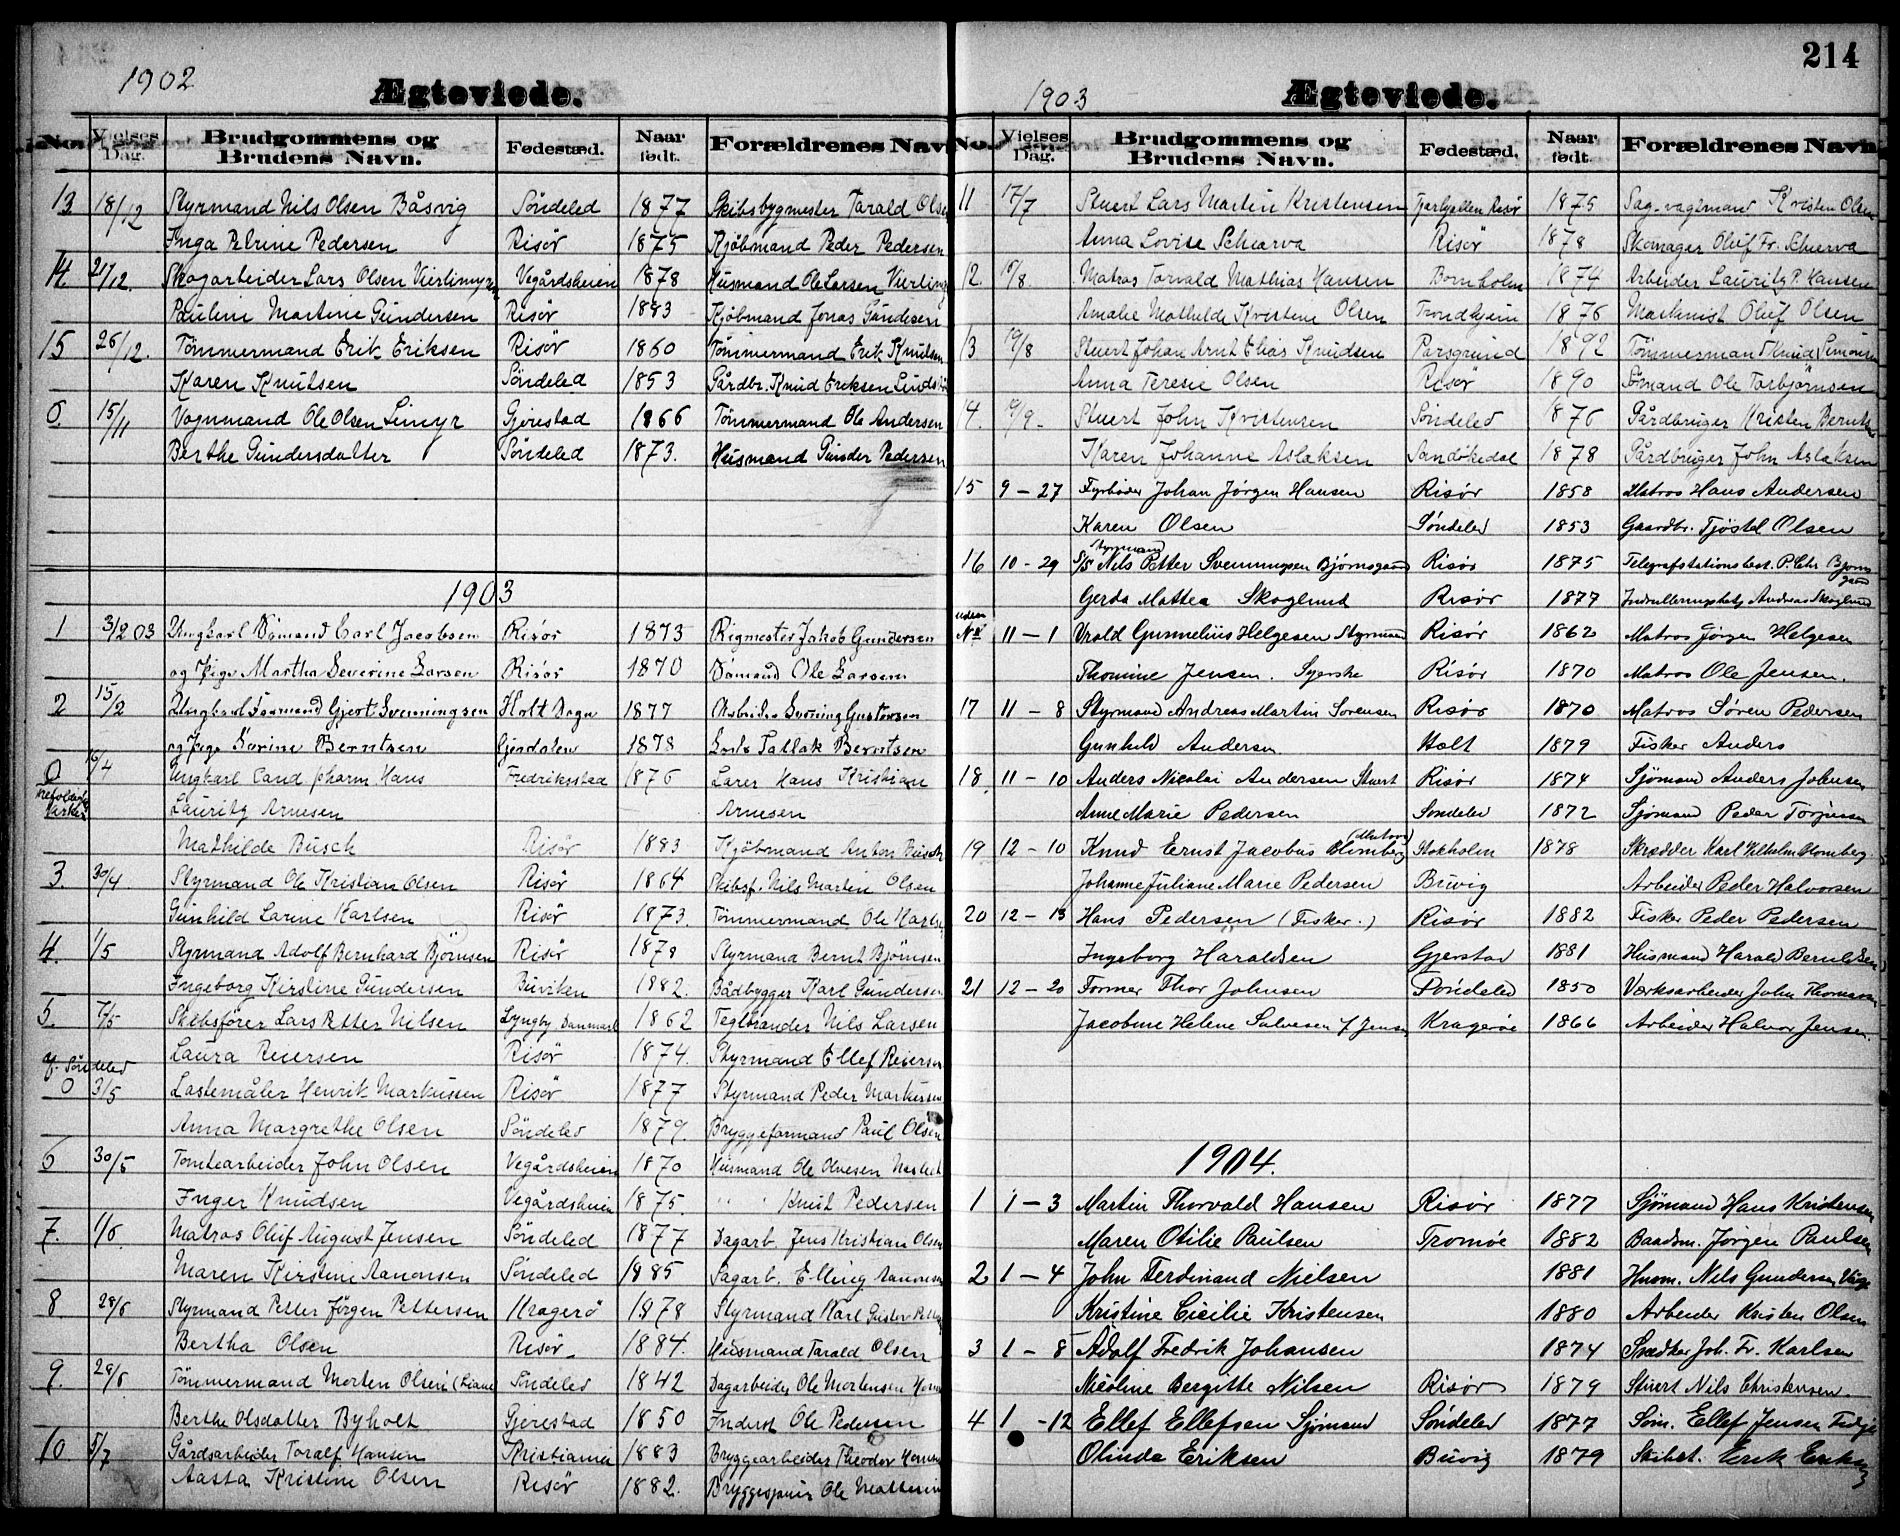 1902
Ægteviede.
No. Vielses Dag. Brudgommens og Brudens Navn. Fødestæd. Naar født. Forældrenes Navn
13 18/12 Styrmand Nils Olsen Båsvig Söndeled 1877 Skibsbygmester Tarald Olsen
Inga Petrine Pedersen Risör 1875 Kjöbmand Peder Pedersen
14. 21/12. Skogarbeider Lars Olsen Vegårdsheien 1878 Husmand Ole Larsen
Pauline Martine Gundersen Risör 1883 Kjöbmand Jonas Gundersen
15 26/12. Tömmermand Erik Eriksen Risör 1860 Tömmermand Erik Knutsen
Karen Knutsen Söndeled 1853 Gårdbr. Knud Eriksen
0. 15/11 Vognmand Ole Olsen Limyr Gjerestad 1866 Tömmermand Ole Andersen
Berthe Gundersdatter Söndeled 1873. Husmand Gunder Pedersen
1903
1 3/2 03 Ungkarl Sömand Carl Jacobsen Risör 1873 Rigmester Jakob Gundersen
og Pige Martha Severine Larsen Risör 1870 Sömand Ole Larsen
2 15/2 Ungkarl Sömand Gjert Svenningsen Holt Sogn 1877 Arbeider Svening Gustavsen
og Pige Berntsen 1878 Tallak Berntsen
0 16/4 Ungkarl Cand pharm Hans Fredriksstad 1876 Lærer Hans Kristian
Lauritz Arnesen Arnesen
Mathilde Busch Risör 1883 Kjöbmand Anton Busch
3. 30/4 Styrmand Ole Kristian Olsen Risör 1864 Skibsf. Nils Martin Olsen
Gunhild Larine Karlsen Risör 1873. Tömmermand Ole Karlsen
4. 1/5 Styrmand Adolf Bernhard Björnsen Risör 1878 Styrmand Bernt Björnsen
Ingeborg Kirstine Gundersen Buviken 1882. Bådbygger Karl Gundersen
5. 7/5 Skibsförer Lars Petter Nilsen Lyngby Danmark 1862 Teglbrænder Nils Larsen
Laura Reiersen Risör 1874. Styrmand Ellef Reiersen
af Söndeled
0 3/5 Lastemåler Henrik Markussen Risör 1877 Styrmand Peder Markussen
Anna Margrethe Olsen Söndeled 1879. Bryggeformand Paul Olsen
6 30/5 Tomtearbeider John Olsen Vegårdsheien 1870 Husmand Ole Olvesen
Inger Knudsen Vegårdsheien 1875. " " Knut Pedersen
7. 1/6. Matros Oluf August Jensen Söndeled 1877 Dagarb. Jens Kristian Olsen
Maren Kirstine Aanonsen Söndeled 1885 Sagarb. Elling Aanonsen
8 28/6 Styrmand Petter Jörgen Pettersen Kragerö 1878 Styrmand Karl Gustav
Bertha Olsen Risör 1884. Husmand Tarald Olsen
9. 28/6 Tömmermand Morten Olsen Söndeled 1842 Dagarbeider Ole Mortensen
Berthe Olsdatter Byholt Gjerestad 1850 Inderst Ole Pedersen
10 5/7 Gårdsarbeider Toralf Hansen Kristiania 1883 Bryggearbeider Theodor Hansen
Aasta Kristine Olsen Risör 1882. Ole
214
1903
Ægteviede.
No. Vielses Dag. Brudgommens og Brudens Navn. Fødestæd. Naar født. Forældrenes Navn
11 17/7 Stuert Lars Martin Kristensen Risör 1875 Sag-vagtmand Kristen Olsen
Anna Lovise Schierva Risör 1878 Skomager Oluf Fr. Schierva
12. Matros Torvald Mathias Hansen Bornholm 1874 Arbeider Lauritz P. Hansen
Amalie Mathilde Kristine Olsen Trondhjem 1876 Maskinist Oluf Olsen
13 19/8 Stuert Johan Arnt Elias Knudsen Porsgrund 1892 Tömmerman Knud Simonsen
Anna Teresie Olsen Risör 1890 Sömand Ole Torbjörnsen
14. Stuert John Kristensen Söndeled 1876 Gårdbruger Kristen Berntsen
Karen Johanne Aslaksen Sandökedal 1878 Gårdbruger John Aslaksen
15 9 - 27 Fyrböder Johan Jörgen Hansen Risör 1858 Matros Hans Andersen
Karen Olsen Söndeled 1853 Gaardbr. Tjöstel Olsen
Styrmand
16 10 - 29 S/S Nils Petter Svenningsen Björnsgaard Risör 1875 Telegrafstationsbest. P. Chr. Bjornsgaard
Gerda Mathea Skoglund Risör 1877 Andreas Skoglund
uden
No 11 - 1 Gunnelius Helgesen Styrmand Risör 1862 Matros Jörgen Helgesen
Thomine Jensen. Syerske Risör 1870 Matros Ole Jensen.
17 11 - 8 Styrmand Andreas Martin Sorensen Risör 1870 Matros Sören Pedersen
Gunhild Andersen Holt 1879 Fisker Anders
18. 11 - 10 Anders Nicolai Andersen Stuert Risör 1874 Sjömand Anders Johnsen
Anne Marie Pedersen Sondeled 1872 Sjömand Peder Torjussen
(Matros)
19 12 - 10 Knud Ernst Jacobus Blomberg Stokholm 1878 Skrædder Karl Vilhelm Blomberg.
Johanne Juliane Marie Pedersen Buvig Arbeider Peder Halvorsen
20 12 - 13 Hans Pedersen (Fisker.) Risör 1882 Fisker Peder Pedersen
Ingeborg Haraldsen Gjerstad 1881 Husmand Harald Berntsen
21 12 - 20 Former Thor Johnsen Söndeled 1850 Værksarbeider John Thomassen
Jacobine Helene Salvesen f. Jensen Krageröe 1866 Arbeider Halvor Jensen.
1904.
1 1 - 3 Martin Thorvald Hansen Risör 1877 Sjömand Hans Kristensen
Maren Otilie Paulsen Tromöe 1882 Baadsm. Jörgen Paulsen
2 1 - 4 John Ferdinand Nielsen 1881 Husm. Nils Gundersen
Kristine Cicilie Kristensen 1880 Arbeider Kristen Olsen
3 1 - 8 Adolf Fredrik Johansen 1874 Snedker Joh. Fr. Karlsen
Nicoline Bergitte Nilsen Risör 1879 Stuert Nils Christensen
4 1 - 12 Ellef Ellefsen Sjömand Söndeled 1877 Söm. Ellef Jensen
Olinde Eriksen Buvig 1879 Skibst. Erik Eriksen